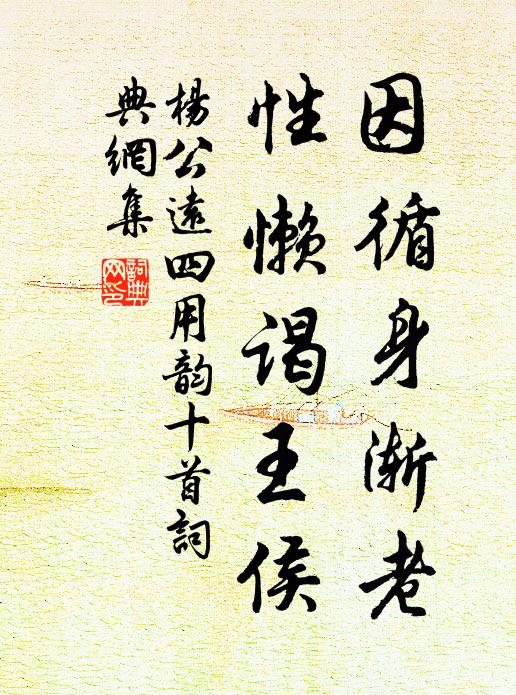 因循身渐老
性懒谒王侯
楊公遠四用韵十首詞
典網集
詞典
网印